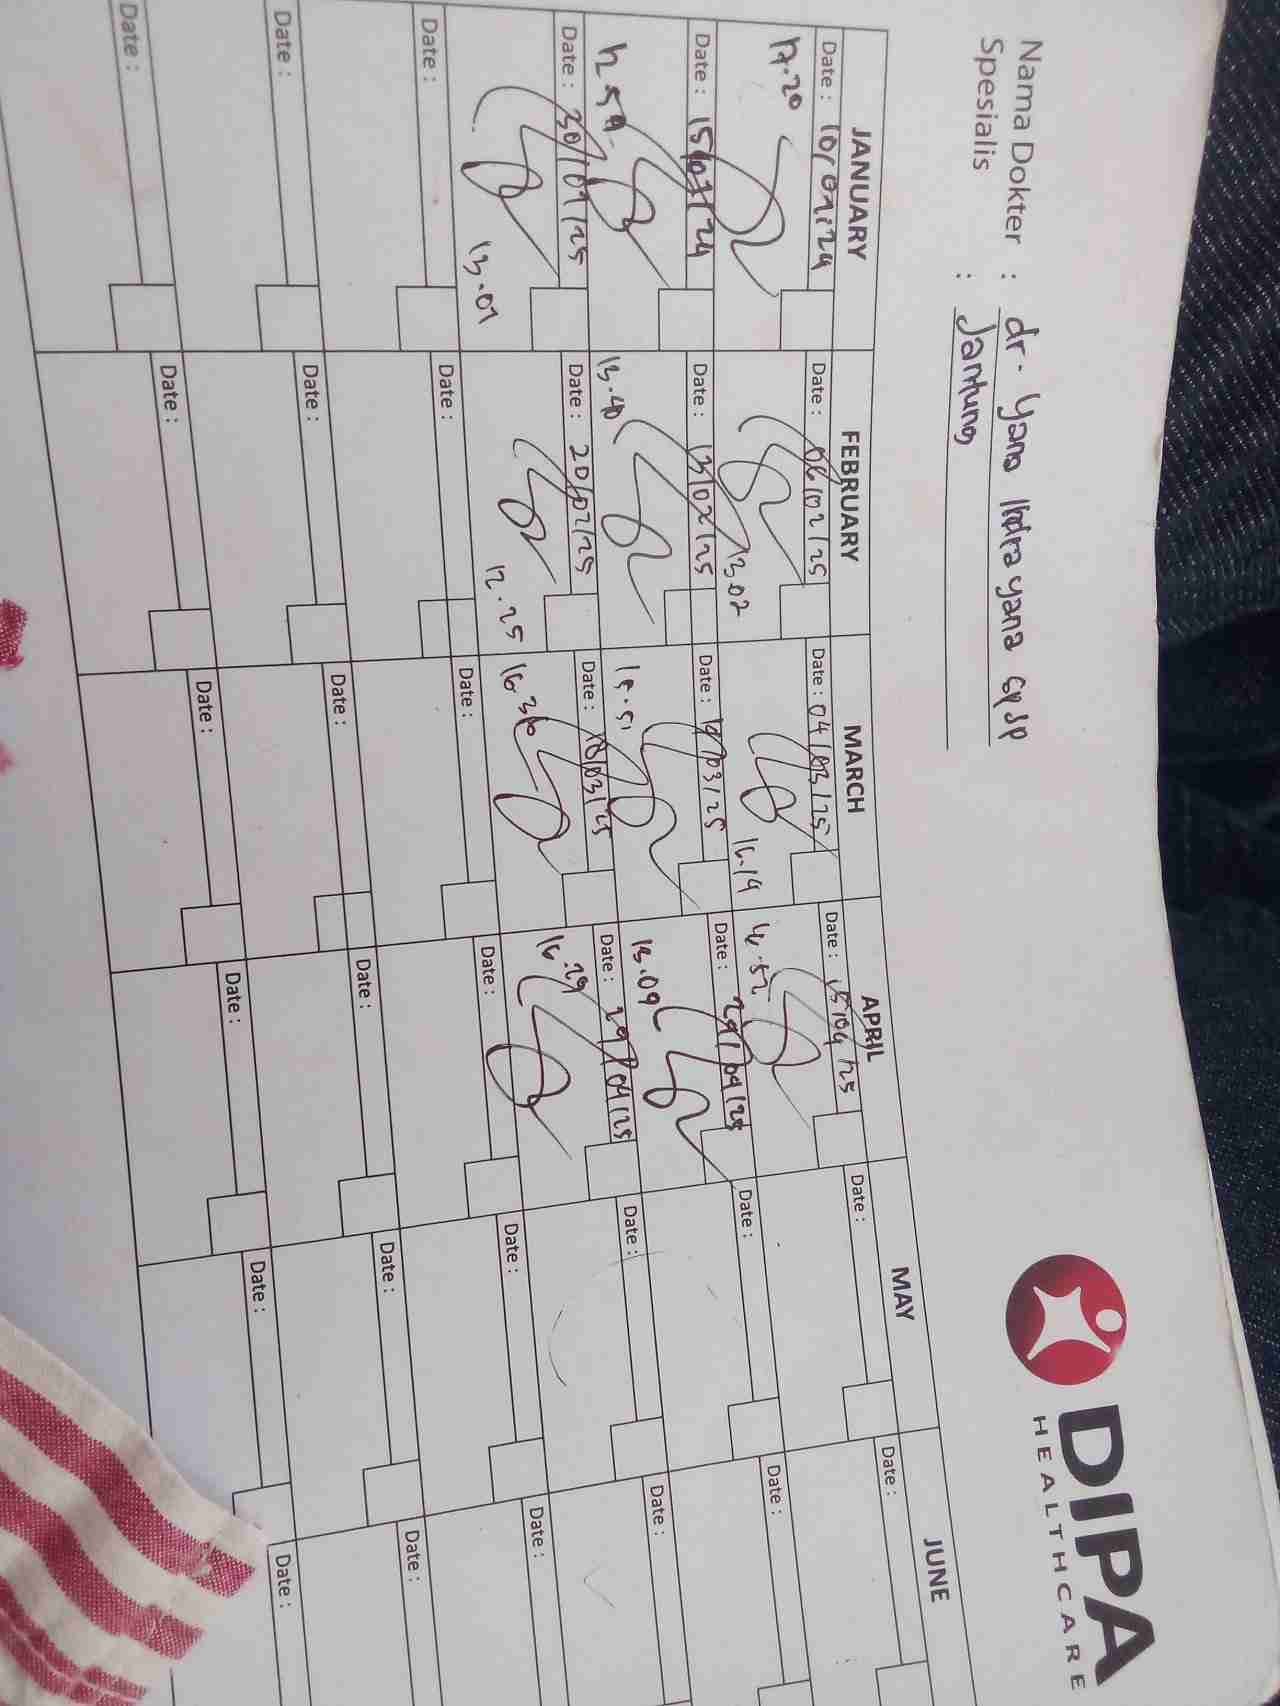 DIPA
HEALTHCARE
Nama Dokter : dr. Yana Indrayana SpJP
Spesialis : Jantung
JANUARY FEBRUARY MARCH APRIL MAY JUNE
Date : 10/01/24 Date : 06/02/25 Date : 04/03/25 Date : 15/04/25 Date : Date :
17.20 13.02 16.19 16.52
Date : 15/01/24 Date : 13/02/25 Date : /03/25 Date : 24/04/25 Date : Date :
12.59 13.40 15.51 13.09
Date : 30/01/25 Date : 20/02/25 Date : 18/03/25 Date : 29/04/25 Date : Date :
13.01 12.25 16.36 16.29
Date : Date : Date : Date : Date : Date :
Date : Date : Date : Date : Date : Date :
Date : Date : Date : Date : Date : Date :